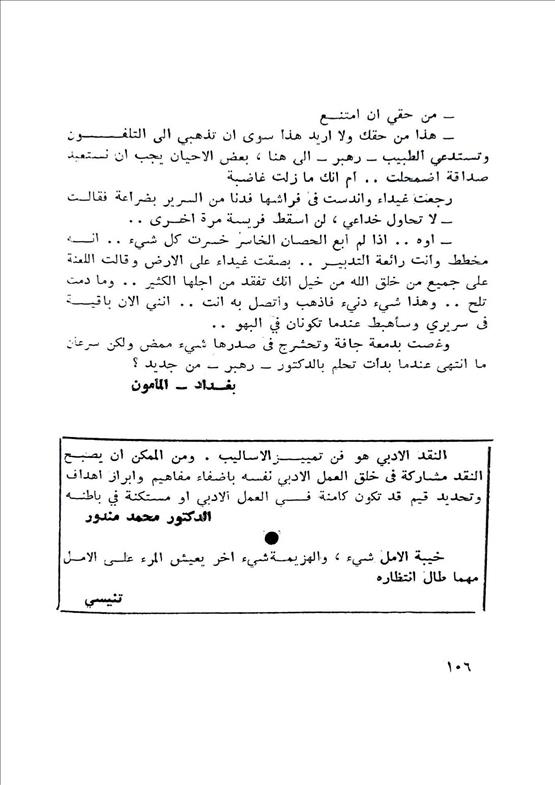 ــ من حقي ان امتنــع
ــ هذا من حقك ولا اريد هذا سوى ان تذهبي الى التلفــــون
وتستدعي الطبيب ــ رهبر ــ الى هنا ، بعض الاحيان يجب ان نستعيد
صداقة اضمحلت . . ام انك ما زلت غاضبة
رجعت غيداء واندست فى فراشها فدنا من السرير بضراعة فقالت
ــ لا تحاول خداعي ، لن اسقط فريسة مرة اخرى . .
ــ اوه . . اذا لم أبع الحصان الخاسر خسرت كل شيء . . انــه
مخطط وانت رائعة التدبير . . بصقت غيداء على الارض وقالت اللعنة
على جميع من خلق الله من خيل انك تفقد من اجلها الكثير . . وما دمت
تلح . . وهذا شيء دنيء فاذهب وأتصل به انت . . انني الان باقيــة
فى سريري وسأهبط عندما تكونان في البهو . .
وغصت بدمعة جافة وتحشرج فى صدرها شيء ممض ولكن سرعان
ما انتهى عندما بدأت تحلم بالدكتور ــ رهبر ــ من جديد ؟
بغداد ــ المأمون
النقد الادبي هو فن تمييــز الاساليب . ومن الممكن ان يصبح
النقد مشاركة فى خلق العمل الادبي نفسه باضفاء مفاهيم وابراز اهداف
وتحديد قيم قد تكون كامنة فــي العمل الادبي او مستكنة في باطنه
الدكتور محمد مندور
خيبة الامل شيء ، والهزيمة شيء اخر يعيش المرء على الامل
مهما طال انتظاره
تنيسي
١٠٦